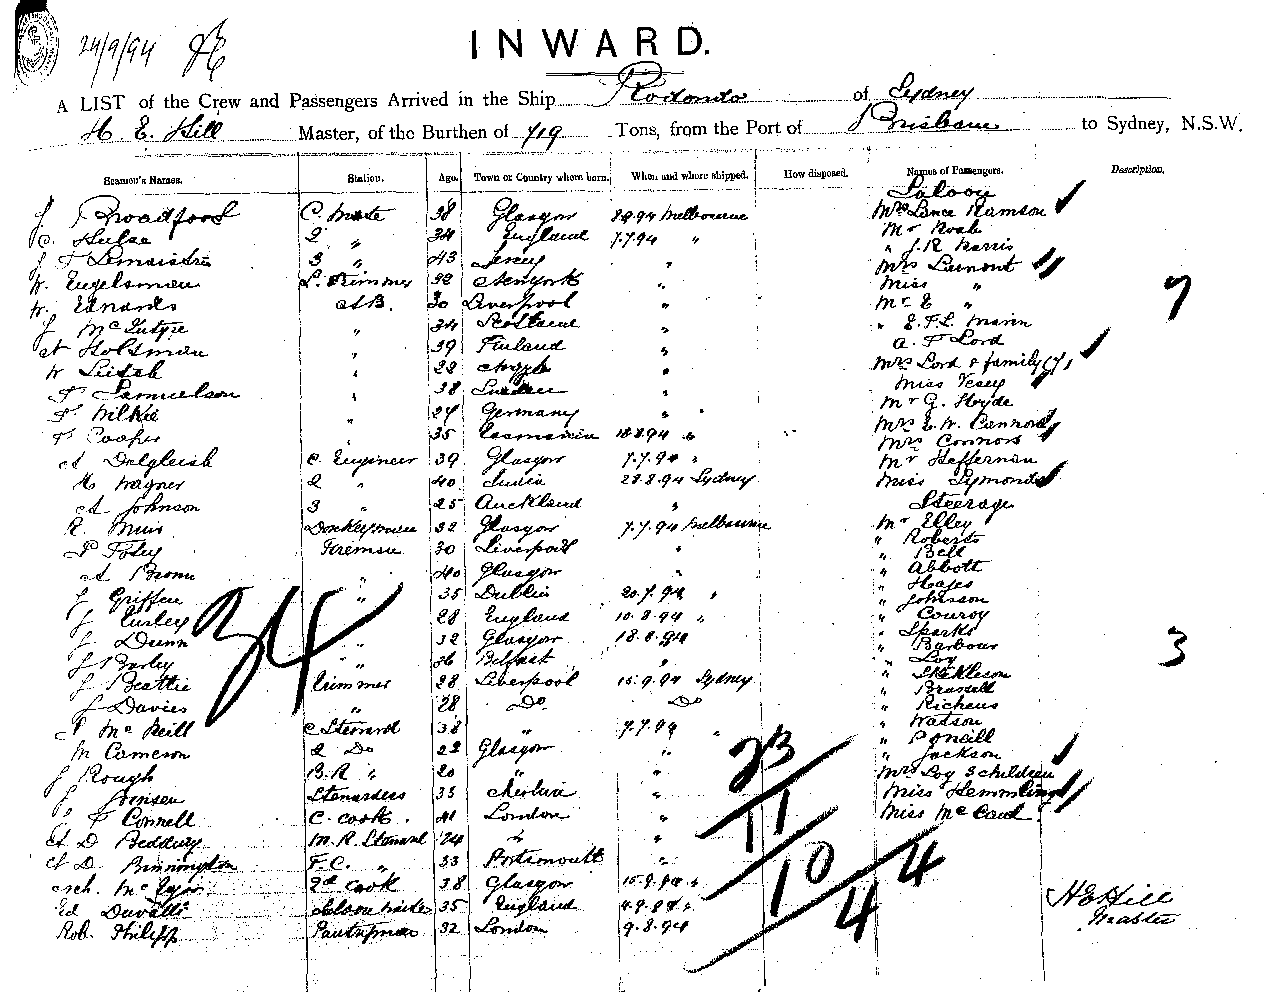 24/9/94
INWARD.
A LIST of the Crew and Passengers Arrived in the Ship Rodondo of Sydney
H. E. Hill Master, of the Burthen of 719 Tons, from the Port of Brisbane to Sydney, N.S.W.
Seamen's Names. Station. Age. Town or Country where born. When and where shipped. How disposed. Names of Passengers. Description.
Saloon
J Broadfoot C. Mate 38 Glasgow 8.8.94 Melbourne Mrs Lance Ramson
C. Hulse 2 " 34 England 7.7.94 " Mr Noah
J F Lemaistre 3 " 43 Jersey " " J.R. Harris
W. Engelsman L. Trimmer 32 Newyork " Mrs Lamont
Miss "
W. Edwards A.B. 30 Liverpool " Mr E "
J McIntyre " 34 Scotland " " E.F.L. Mann
A Holdsman " 39 Finland " A. F Lord
W Leitch " 22 Argyle " Mrs Lord & family (7)
F Samuelson " 38 Sweden " Miss Vesey
F. Wilkie " 27 Germany " Mr G. Heyde
F Cooper " 35 Tasmania 18.8.94 " Mrs E. W. Connors
Mrs Connors
A Dalgleish C. Engineer 39 Glasgow 7.7.94 " Mr Heffernan
H Wagner 2 " 40 India 28.8.94 Sydney Miss Symonds
A Johnson 3 " 25 Auckland " Steerage
R. Muir Donkeyman 32 Glasgow 7.7.94 Melbourne Mr Elley
" Roberts
P Foley Fireman 30 Liverpool " " Bell
A Brown " 40 Glasgow " " Abbott
" Hayes
J Griffen " 35 Dublin 20.7.94 " " Johnson
J Curley " 28 England 10.8.94 " " Conroy
" Sparks
J. Dunn " 32 Glasgow 18.8.94 " Barbour
J Burley " 36 Belfast " " Loy
J Beattie Trimmer 28 Liverpool 15.9.94 Sydney " Skekleson
" Brussell
J Davies " 28 Do Do " Richens
P McNeill C Steward 38 " 7.7.94 " " Watson
" O'Neill
M Cameron 2 Do 22 Glasgow " " Jackson
J Rough B.R " 20 " " Mrs Loy 3 children
J Joinsen Stewardess 33 Cheshire " Miss Hemmling
J F Connell C. Cook 41 London " Miss McCaul
A D Beddury M. R. Steward 24 " "
A D. Binnington F.C. " 33 Portsmouth "
Arch. 2nd Cook 38 Glasgow 15.9.94 "
Ed Duvalli Saloon waiter 35 England 4.9.94 "
Rob. Philipp Pantryman 32 London 9.8.94
34
7
3
23
11
10
4
4
H E Hill
Master